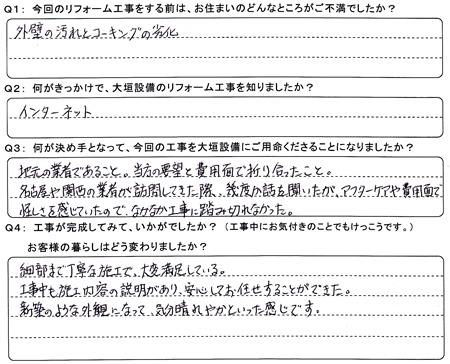 Q1：今回のリフォーム工事をする前は、お住まいのどんなところがご不満でしたか？
外壁の汚れとコーキングの劣化
Q2：何がきっかけで、大垣設備のリフォーム工事を知りましたか？
インターネット
Q3：何が決め手となって、今回の工事を大垣設備にご用命くださることになりましたか？
地元の業者であること。当方の要望と費用面で折り合ったこと。
名古屋や関西の業者が訪問してきた際、幾度か話を聞いたが、アフターケアや費用面で
怪しさを感じていたので、なかなか工事に踏み切れなかった。
Q4：工事が完成してみて、いかがでしたか？（工事中にお気付きのことでもけっこうです。）
お客様の暮らしはどう変わりましたか？
細部まで丁寧な施工で、大変満足している。
工事中も施工内容の説明があり、安心してお任せすることができた。
新築のような外観になって、気分晴れやかといった感じです。